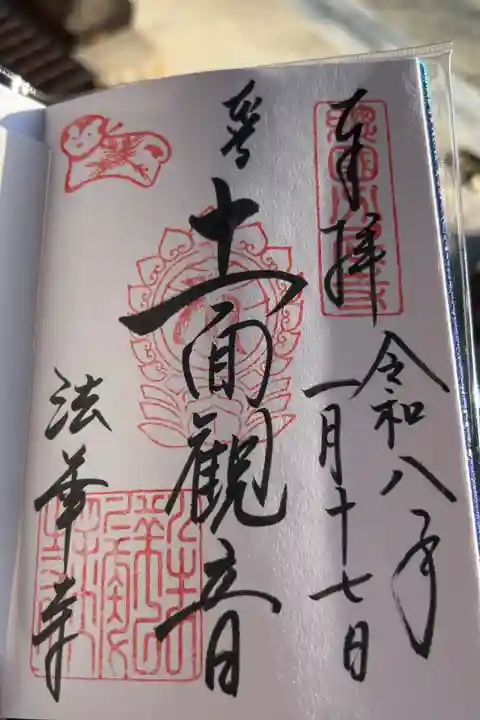 奉拝
令和八年
一月十七日
十一面觀音
法華寺